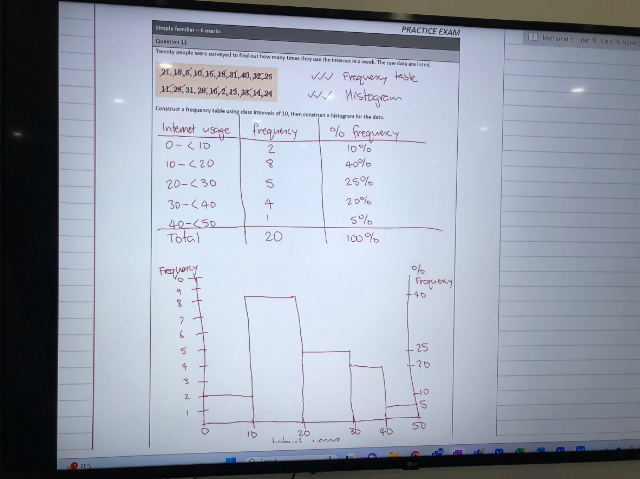 PRACTICE EXAM
Simple familiar – 6 marks
Question 11
Twenty people were surveyed to find out how many times they use the internet in a week. The raw data are listed.
21, 18, 5, 10, 15, 18, 31, 40, 32, 25
11, 28, 31, 29, 16, 2, 13, 33, 14, 24
✓✓✓ Frequency table
✓✓✓ Histogram
Construct a frequency table using class intervals of 10, then construct a histogram for the data.
Internet usage frequency % frequency
0-<10 2 10%
10-<20 8 40%
20-<30 5 25%
30-<40 4 20%
40-<50 1 5%
Total 20 100%
Frequency
% Frequency
9
8
7
6
5
4
3
2
1
40
25
20
10
5
0 10 20 30 40 50